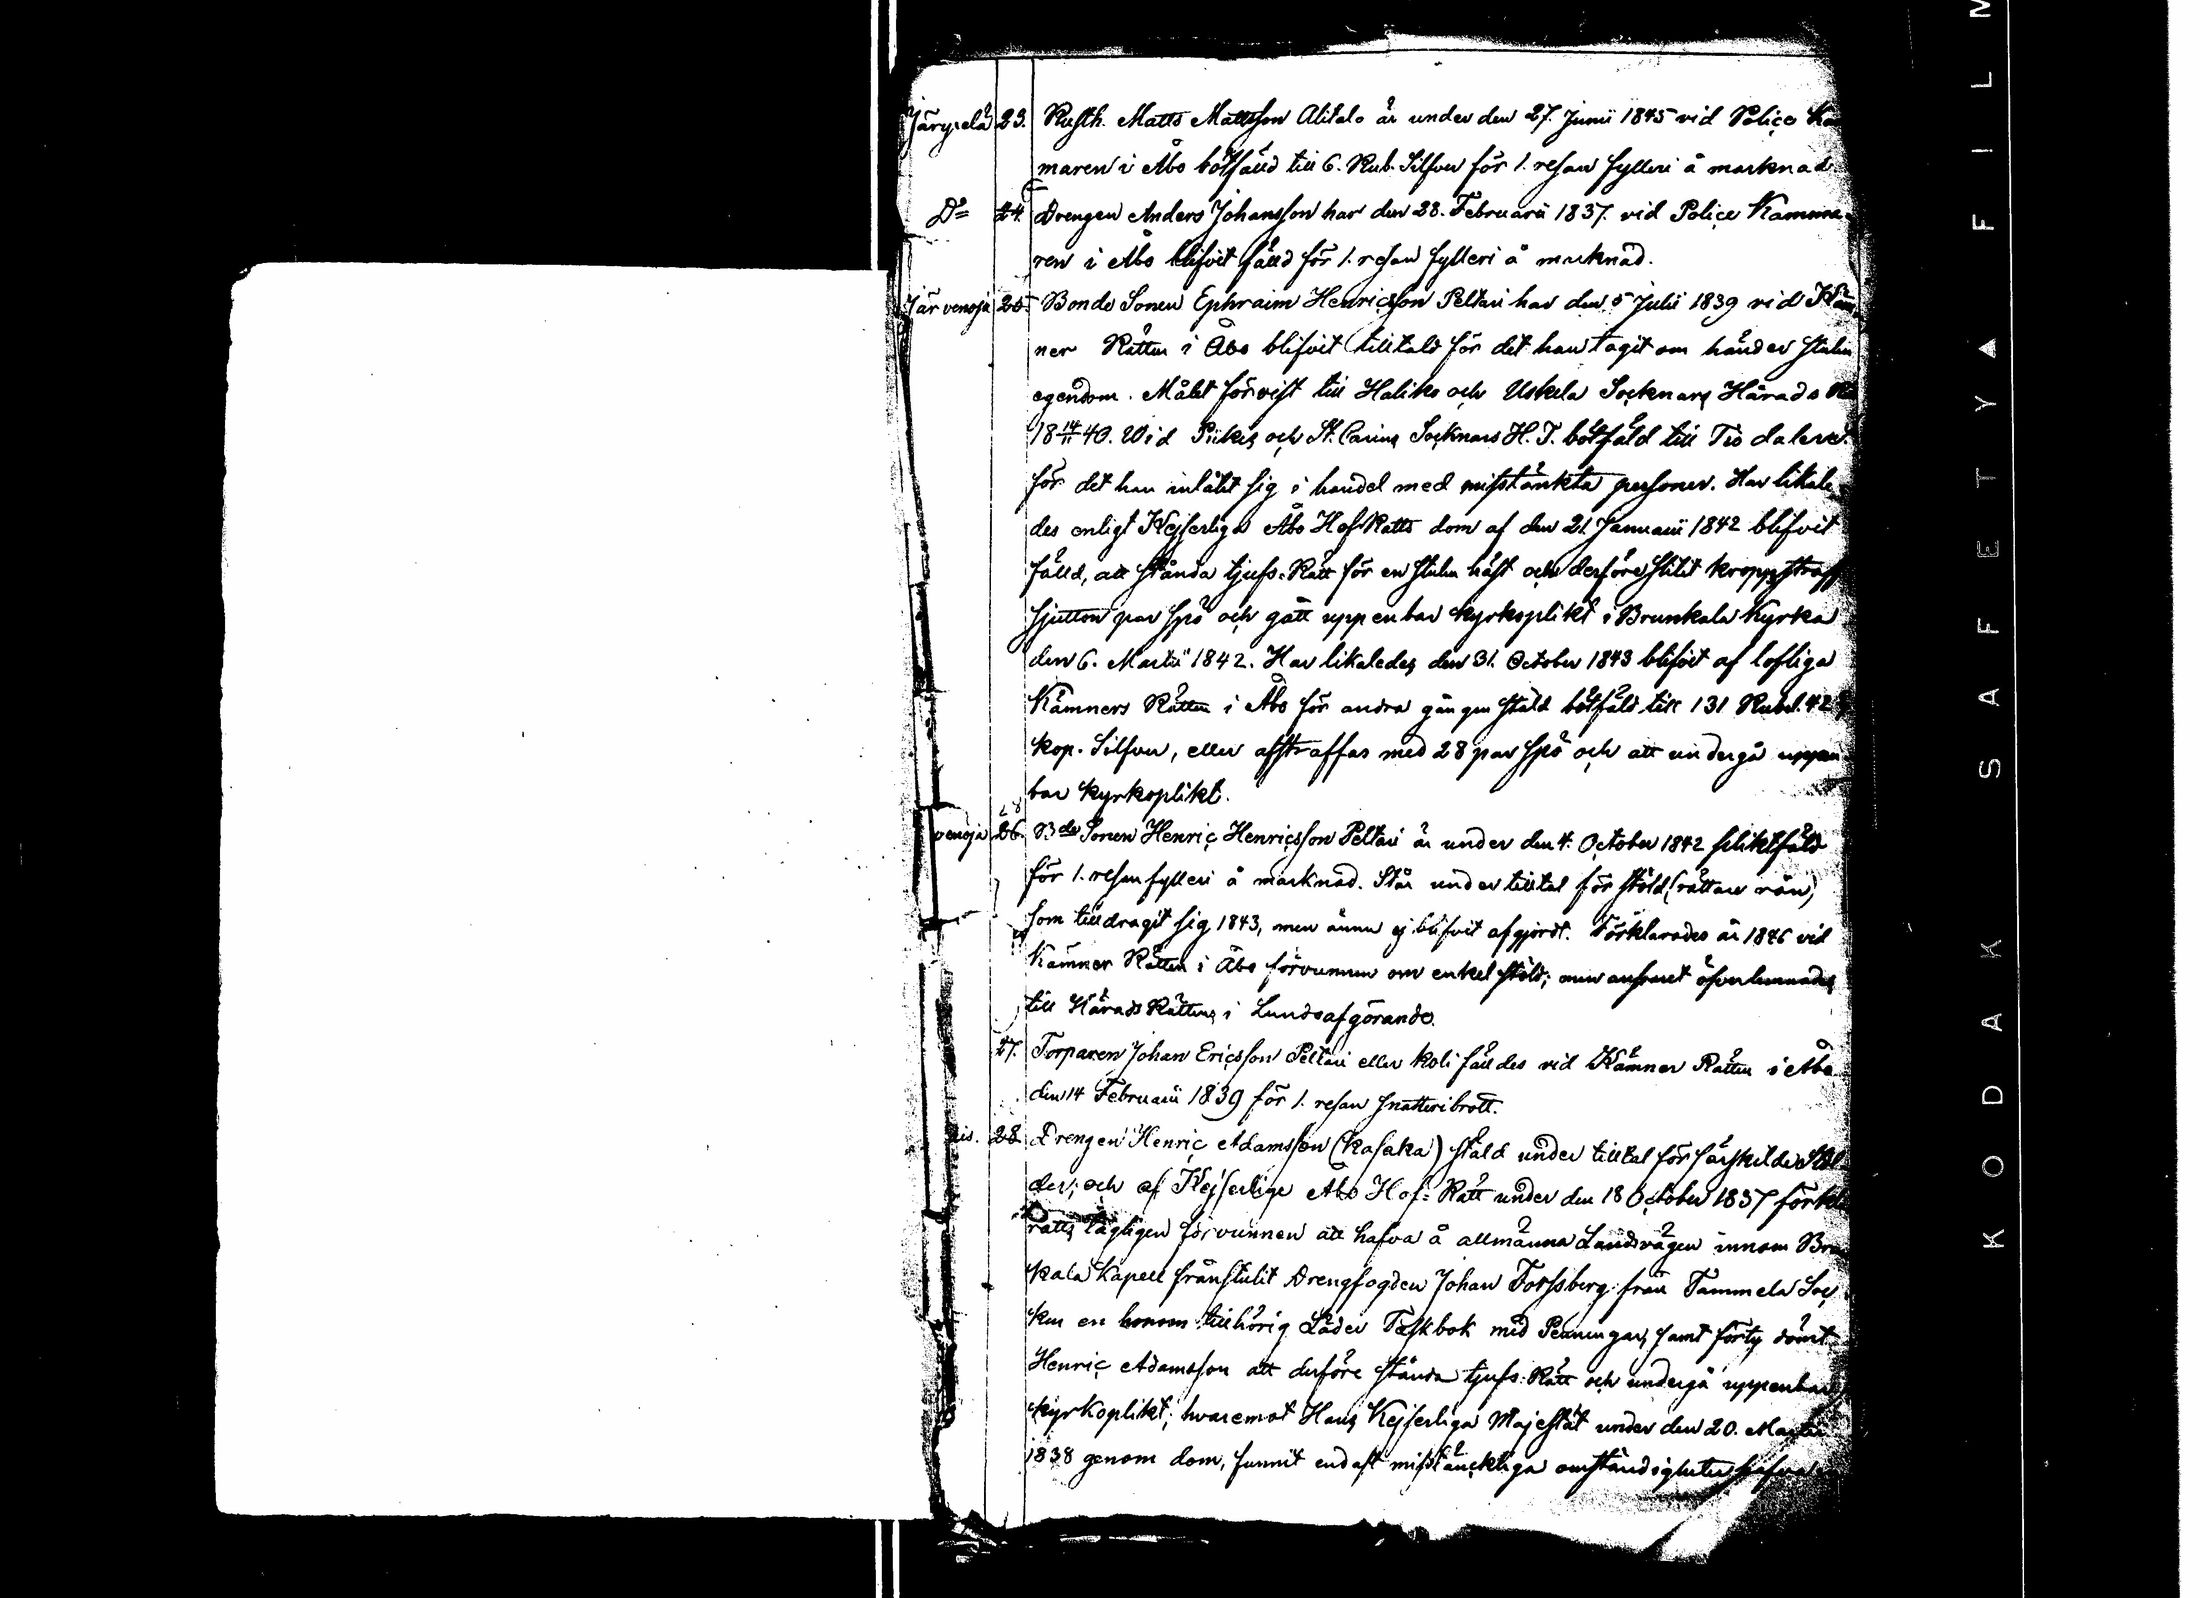 Järvelä 23. Rusth. Matts Mattsson Alitalo är under den 27. Junii 1845 vid Police Ka
maren i Åbo botfälld till 6. Rub. Silfver för 1. resan fylleri å marknad.
Do 24. Drengen Anders Johansson har den 28. Februarii 1837. vid Police Kamma-
ren i Åbo blifvit fälld för 1. resan fylleri å marknad.
Järvenoja 25. Bonde Sonen Ephraim Henricsson Peltari har den 5 Julii 1839 vid Käm
ner Rätten i Åbo blifvit tilltald för det han tagit om händer stulen
egendom. Målet förvist till Haliko och Uskela Socknars Härads Rä
18 14/11 40. Vid Pikis och St. Carins Socknars H. T. botfäld till Tio daler
för det han inlåtit sig i handel med misstänkta personer. Har likale-
des enligt Kejserliga Åbo Hof Rätts dom af den 21. Januarii 1842 blifvit
fälld, att stånda tjufs-Rätt för en stulen häst och derföre slitit kroppstraff
sjutton par spö och gått uppenbar kyrkoplikt i Brunkala Kyrka
den 6. Martii 1842. Har likaledes den 31. October 1843 blifvit af lofliga
Kämners Rätten i Åbo för andra gången stöld botfäld till 131 Rubel. 42
kop. Silfver, eller afstraffas med 28 par spö och att undergå uppen-
bar kyrkoplikt.
venoja 26. Bde Sonen Henric Henricsson Peltari är under den 4. October 1842 pliktfäld
för 1. resan fylleri å marknad. Står under tilltal för stöld (rättare rån)
som tilldragit sig 1843, men ännu ej blifvit afgjordt. Förklarades år 1846 vid
Kämner Rätten i Åbo förvunnen om enkel stöld; men ansvaret öfverlemnades
till Härads Rättens i Lundo afgörande.
27. Torparen Johan Ericsson Peltari eller Koli fälldes vid Kämner Rätten i Åbo
den 14 Februarii 1839 för 1. resan snatteribrott.
is. 28. Drengen Henric Adamsson (Kasaka) stäld under tilltal för särskilde Stöl
der; och af Kejserlige Åbo Hof-Rätt under den 18 October 1837 förkla
rats lagligen förvunnen att hafva å allmänna Landsvägen innom Bru
kala Kapell frånstulit Drengfogden Johan Forssberg från Tammela Soc
ken en honom tillhörig Läder Taskbok med Penningar, samt förty dömt
Henric Adamsson att derföre stånda tjufs-Rätt och undergå uppenbar
kyrkoplikt; hvaremot Hans Kejserliga Majestät under den 20. Martii
1838 genom dom, funnit endast misstänckliga omständigheter hafva
KODAK SAFETY ▲ FILM